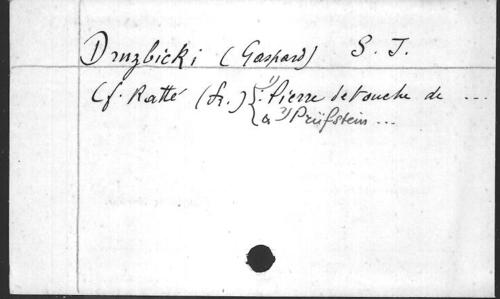 Druzbicki (Gaspard) S. J.
Cf. Ratté (Fr.) { 1) Pierre de touche de ...
2) Prüfstein ...